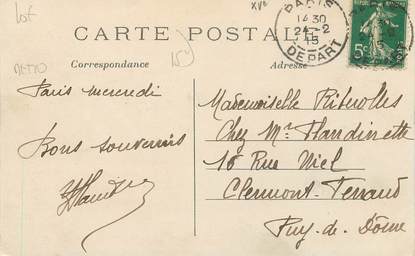 Lot
XVe
PARIS
14 30
24-2
15
DEPART
5c
CARTE POSTALE
Correspondance
Adresse
METRO
15
Paris mercredi
Bons souvenirs
Mademoiselle
Chez Mr Flandinette
18 Rue Niel
Clermont-Ferrand
Puy-de-Dôme